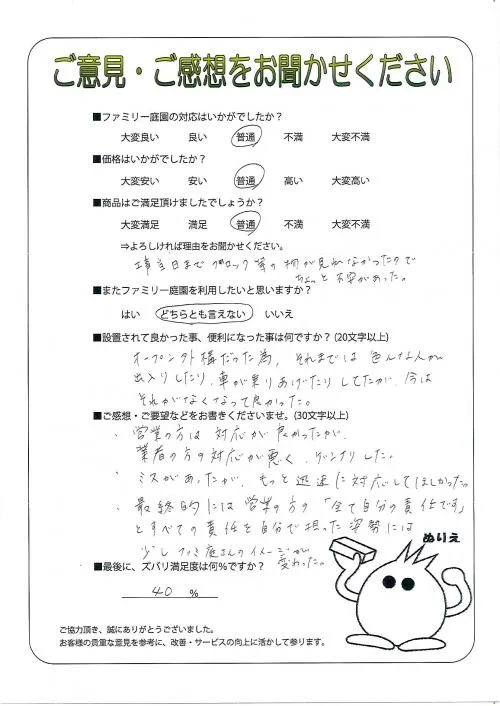 ご意見・ご感想をお聞かせください
■ファミリー庭園の対応はいかがでしたか?
大変良い 良い 普通 不満 大変不満
■価格はいかがでしたか?
大変安い 安い 普通 高い 大変高い
■商品はご満足頂けましたでしょうか?
大変満足 満足 普通 不満 大変不満
⇒よろしければ理由をお聞かせください。
工事当日まで ブロック等の柄が見れなかったので
ちょっと不安があった。
■またファミリー庭園を利用したいと思いますか?
はい どちらとも言えない いいえ
■設置されて良かった事、便利になった事は何ですか?(20文字以上)
オープン外構だった為、それまでは色んな人が
出入りしたり、車が乗りあげたりしてたが、今は
それがなくなって良かった。
■ご感想・ご要望などをお書きくださいませ。(30文字以上)
・営業の方は対応が良かったが、
業者の方の対応が悪く、ゲンナリした。
・ミスがあったが、もっと迅速に対応してほしかった。
・最終的には営業の方の「全て自分の責任です」
とすべての責任を自分で担った姿勢には
少しファミ庭さんのイメージが
変わった。
ぬりえ
■最後に、ズバリ満足度は何%ですか?
40 %
ご協力頂き、誠にありがとうございました。
お客様の貴重な意見を参考に、改善・サービスの向上に活かして参ります。